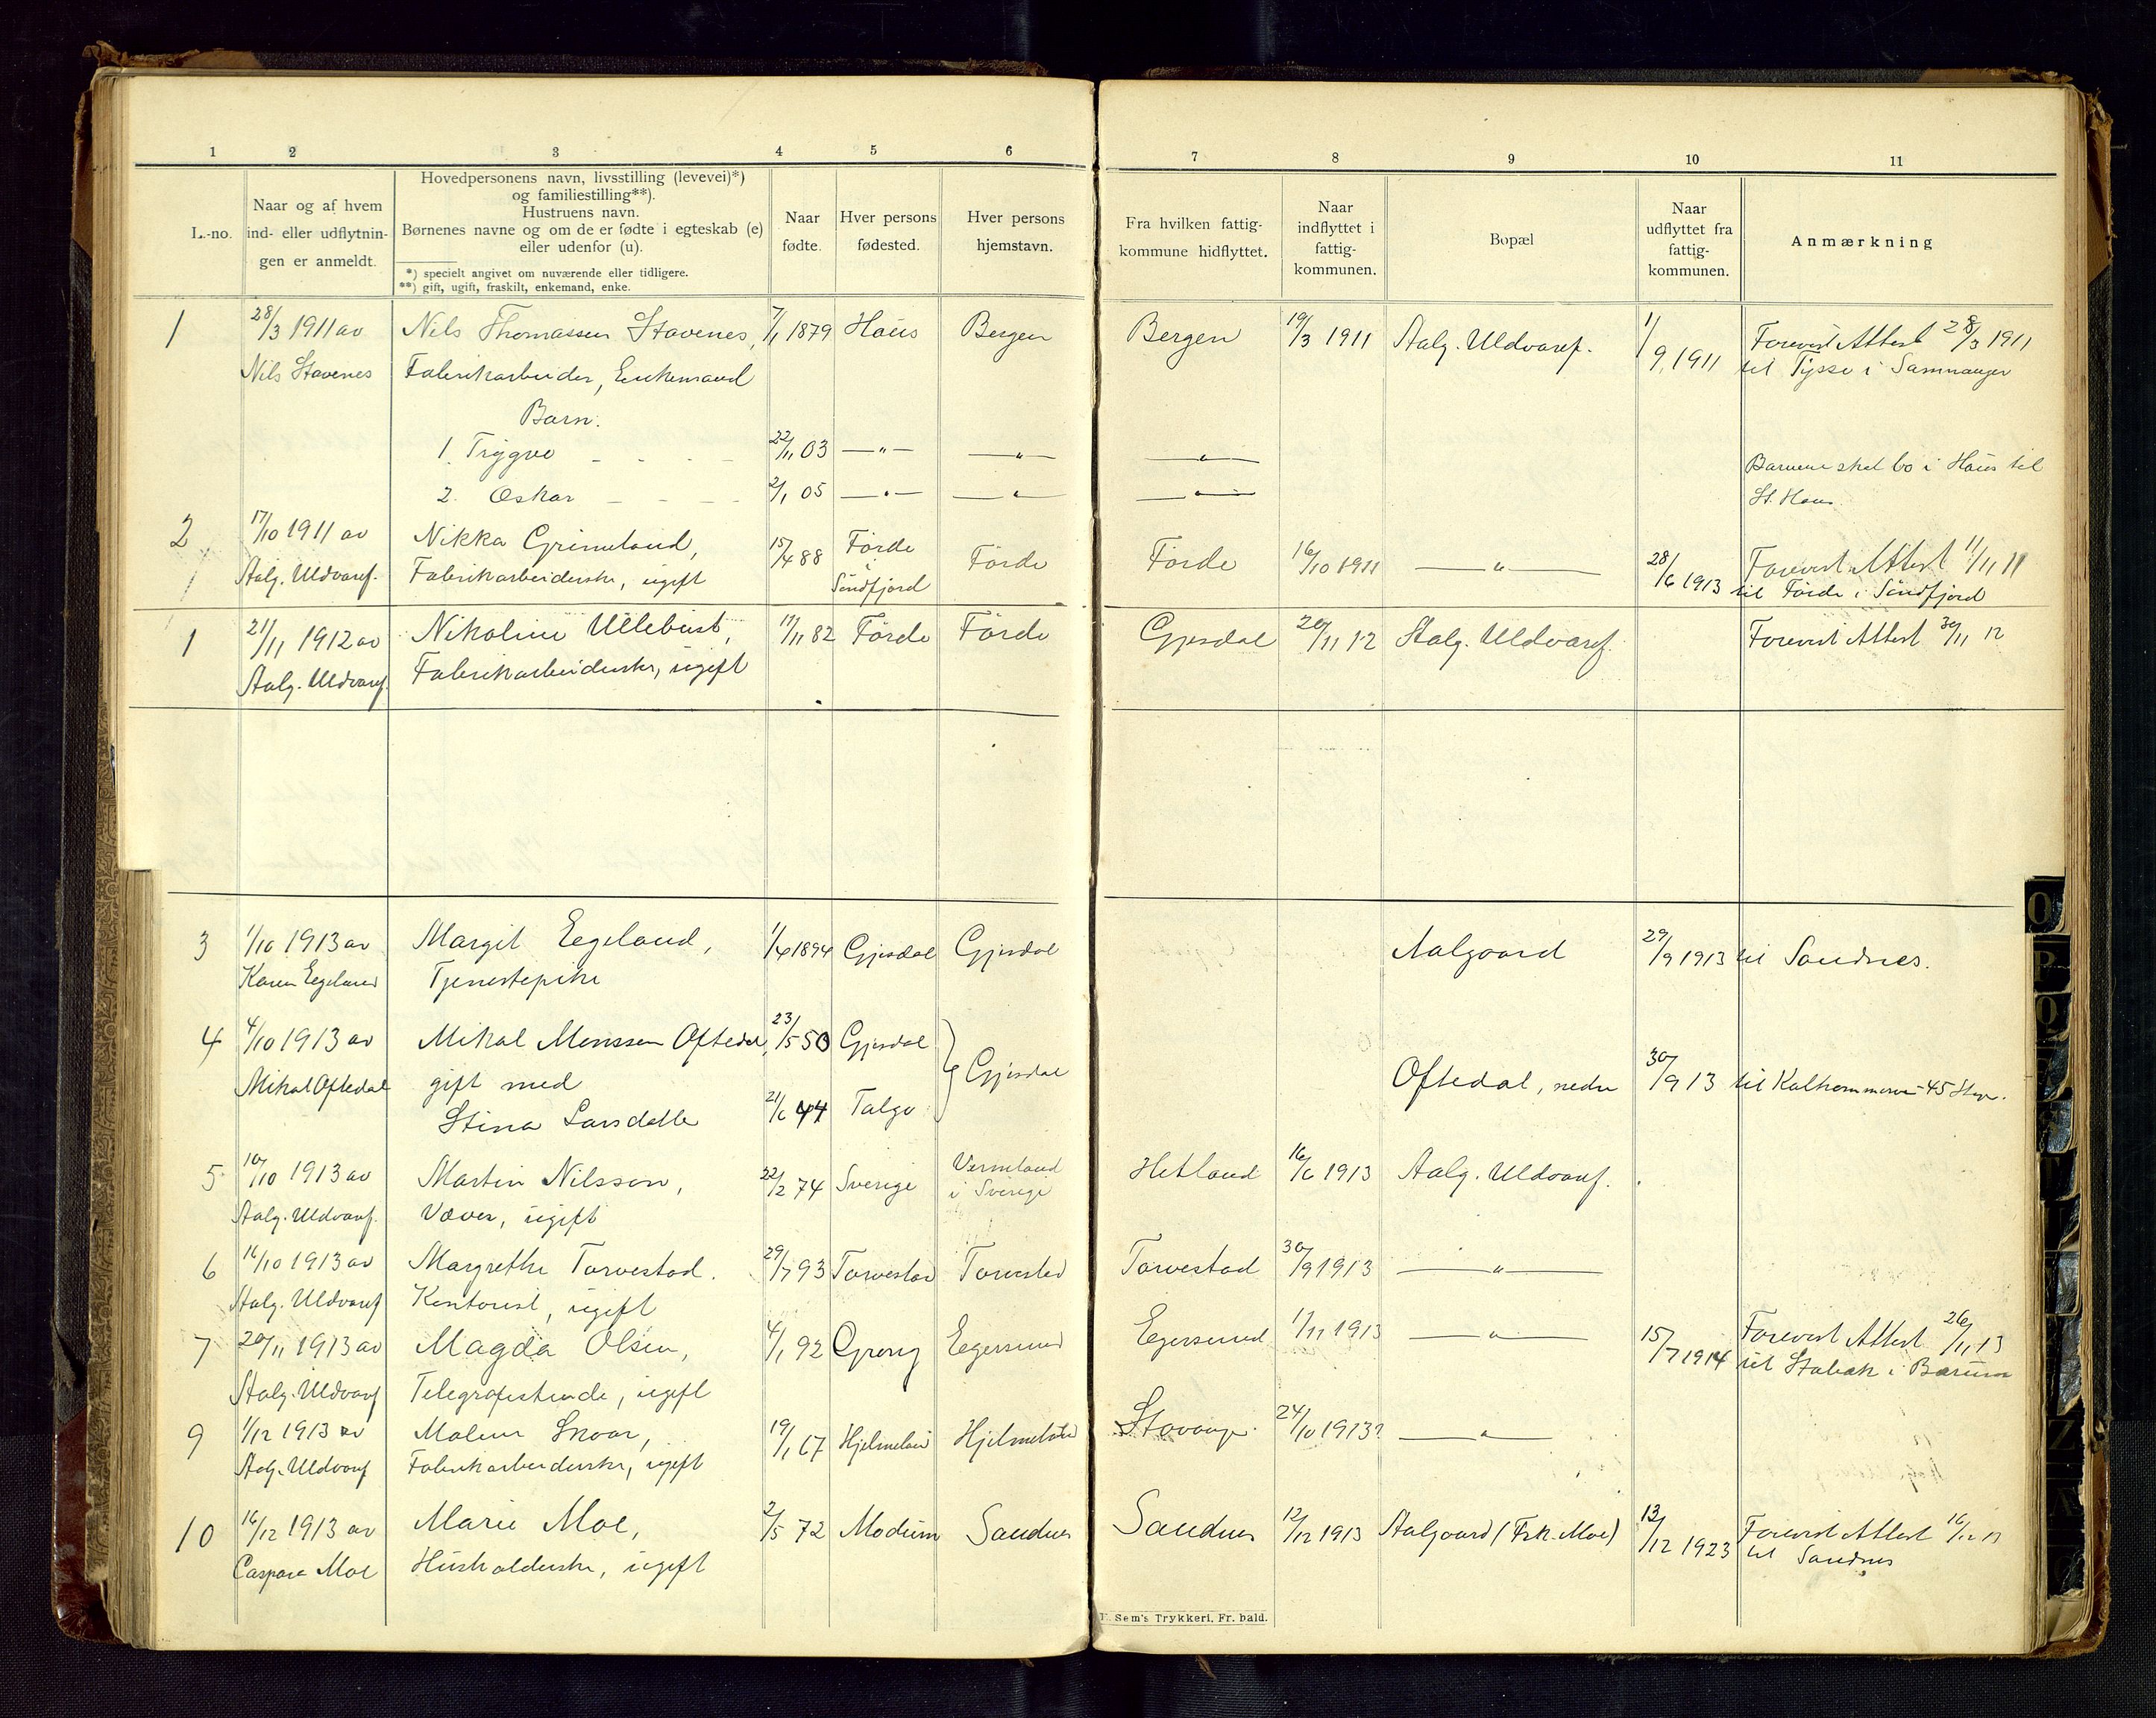 1 2 3 4 5 6
L.-no.
Naar og af hvem
ind- eller udflytnin-
gen er anmeldt.
Hovedpersonens navn, livsstilling (levevei)*)
og familiestilling**).
Hustruens navn.
Børnenes navne og om de er fødte i egteskab (e)
eller udenfor (u).
*) specielt angivet om nuværende eller tidligere.
**) gift, ugift, fraskilt, enkemand, enke.
Naar
fødte.
Hver persons
fødested.
Hver persons
hjemstavn.
1 28/3 1911 av Nils Thomassen Stavenes, 7/1 1879 Haus Bergen
Nils Stavenes Fabrikarbeider, Enkemand
Barn:
1. Trygve - - - - 22/11 03 —"— —"—
2. Oskar - - - - 2/1 05 —"— —"—
2 17/10 1911 av Nikka Grimeland, 15/4 88 Førde Førde
Aalg. Uldvaref. Fabrikarbeiderske, ugift i Søndfjord
1 21/11 1912 av Nikoline Ullebust, 19/11 82 Førde Førde
Aalg. Uldvaref. Fabrikarbeiderske, ugift
3 1/10 1913 av Margit Eegeland, 1/6 1894 Gjesdal Gjesdal
Karen Eegeland Tjenestepike
4 4/10 1913 av Mikal Monssen Oftedal, 23/5 50 Gjesdal
Mikal Oftedal gift med Gjesdal
Stina Larsdatter 21/6 44 Talgø
5 10/10 1913 av Martin Nilsson, 22/2 74 Sverige Vermeland
i Sverige
Aalg. Uldvaref. Væver, ugift
6 16/10 1913 av Margrethe Torvestad. 29/7 93 Torvestad Torvestad
Aalg. Uldvaref Kontorist, ugift
7 20/11 1913 av Magda Olsen, 4/1 92 Grong Egersund
Aalg. Uldvaref Telegrafistinde, ugift
9 1/12 1913 av Malene Skaar, 19/1 67 Hjelmeland Hjelmeland
Aalg. Uldvaref Fabrikarbeiderske, ugift
10 16/12 1913 av Marie Moe, 2/5 72 Modum Sandnes
Caspara Moe Husholderske, ugift
7 8 9 10 11
Fra hvilken fattig-
kommune hidflyttet.
Naar
indflyttet i
fattig-
kommunen.
Bopæl
Naar
udflyttet fra
fattig-
kommunen.
Anmærkning
Bergen 19/3 1911 Aalg. Uldvaref. 1/9 1911 Forevist Attest 28/3 1911
til Tysse i Samnanger
—"— Barnene skal bo i Haus til
—"— St. Hans
Førde 16/10 1911 —"— 28/6 1913 Forevist Attest 11/11 11
til Førde i Søndfjord
Gjesdal 20/11 12 Aalg. Uldvaref. Forevist Attest 30/11 12
Aalgaard 29/9 1913 til Sandnes.
Oftedal, nedre 30/9 13 til Kalhammervei 45 Stgr.
Hetland 16/6 1913 Aalg. Uldvaref.
Torvestad 30/9 1913 —"—
Egersund 1/11 1913 —"— 15/7 1914 Forevist Attest 26/11 13
til Stabæk i Bærum
Stavanger 24/10 1913? —"—
Sandnes 12/12 1913 Aalgaard (Frk. Moe) 13/12 1923 Forevist Attest 16/12 13
til Sandnes
Sem's Trykkeri, Fr. hald.
O
P
Q
Z